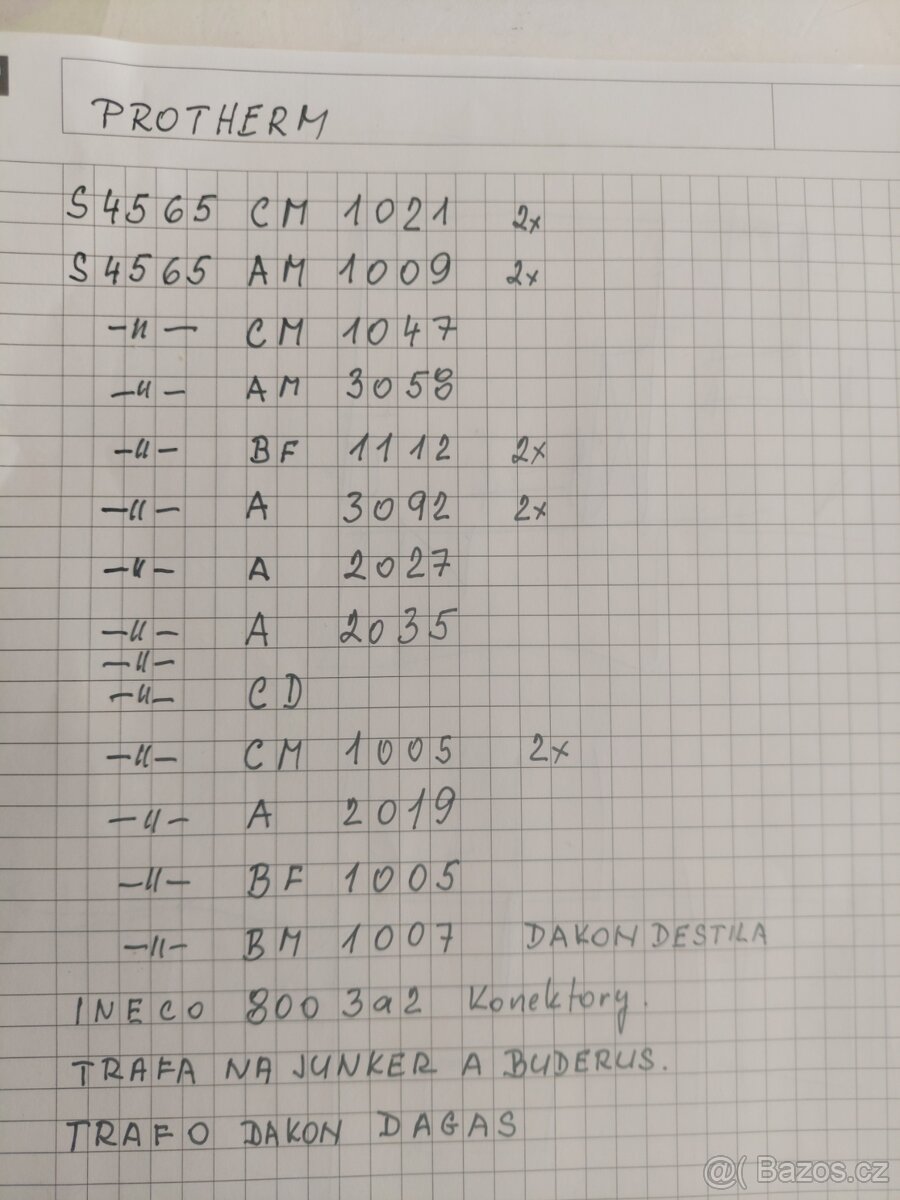 PROTHERM
S4565 CM 1021 2x
S4565 AM 1009 2x
-〃- CM 1047
-〃- AM 3058
-〃- BF 1112 2x
-〃- A 3092 2x
-〃- A 2027
-〃- A 2035
-〃-
-〃- CD
-〃- CM 1005 2x
-〃- A 2019
-〃- BF 1005
-〃- BM 1007 DAKON DESTILA
INECO 800 3a2 Konektory.
TRAFA NA JUNKER A BUDERUS.
TRAFO DAKON DAGAS
@( Bazos.cz